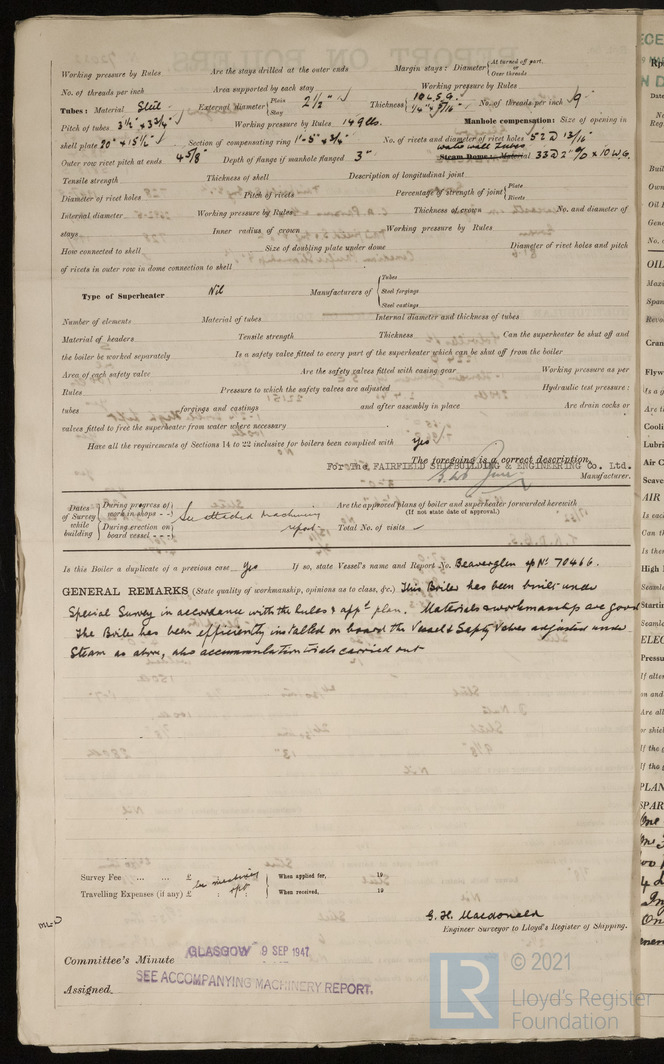 Working pressure by Rules Are the stays drilled at the outer ends Margin stays: Diameter { At turned off part, or Over threads
No. of threads per inch Area supported by each stay Working pressure by Rules
Tubes: Material Steel External diameter { Plain Stay 2 1/2" Thickness { 10 L.S.G. 1/4" & 5/16" No. of threads per inch 9
Pitch of tubes 3 1/2" x 3 3/4" Working pressure by Rules 149 lbs. Manhole compensation: Size of opening in
shell plate 20" x 15 1/2" Section of compensating ring 1'-5" x 3/4" No. of rivets and diameter of rivet holes 52 @ 13/16"
Outer row rivet pitch at ends 4 5/8" Depth of flange if manhole flanged 3" Steam Dome: Material water wall tubes 33 @ 2" o/D x 10 W.G.
Tensile strength Thickness of shell Description of longitudinal joint
Diameter of rivet holes Pitch of rivets Percentage of strength of joint { Plate Rivets
Internal diameter Working pressure by Rules Thickness of crown No. and diameter of
stays Inner radius of crown Working pressure by Rules
How connected to shell Size of doubling plate under dome Diameter of rivet holes and pitch
of rivets in outer row in dome connection to shell
Type of Superheater Nil Manufacturers of { Tubes Steel forgings Steel castings
Number of elements Material of tubes Internal diameter and thickness of tubes
Material of headers Tensile strength Thickness Can the superheater be shut off and
the boiler be worked separately Is a safety valve fitted to every part of the superheater which can be shut off from the boiler
Area of each safety valve Are the safety valves fitted with easing gear Working pressure as per
Rules Pressure to which the safety valves are adjusted Hydraulic test pressure:
tubes forgings and castings and after assembly in place Are drain cocks or
valves fitted to free the superheater from water where necessary
Have all the requirements of Sections 14 to 22 inclusive for boilers been complied with Yes
The foregoing is a correct description,
For The FAIRFIELD SHIPBUILDING & ENGINEERING Co. Ltd.
Manufacturer.
Dates of Survey while building { During progress of work in shops - - During erection on board vessel - - - } See attached machinery report. Are the approved plans of boiler and superheater forwarded herewith (If not state date of approval.)
Total No. of visits
Is this Boiler a duplicate of a previous case Yes If so, state Vessel's name and Report No. Beaverglen Rpt No 70466.
GENERAL REMARKS (State quality of workmanship, opinions as to class, &c.) This Boiler has been built under
Special Survey in accordance with the Rules & appd plan. Materials & workmanship are good
The Boiler has been efficiently installed on board the Vessel & Safety Valves adjusted under
Steam as above, also accumulation trials carried out
Survey Fee ... ... £ see machinery rpt. When applied for, 19
Travelling Expenses (if any) £ When received, 19
G. H. Macdonald
Engineer Surveyor to Lloyd's Register of Shipping.
Committee's Minute GLASGOW 9 SEP 1947
Assigned SEE ACCOMPANYING MACHINERY REPORT.
LR © 2021
Lloyd's Register
Foundation